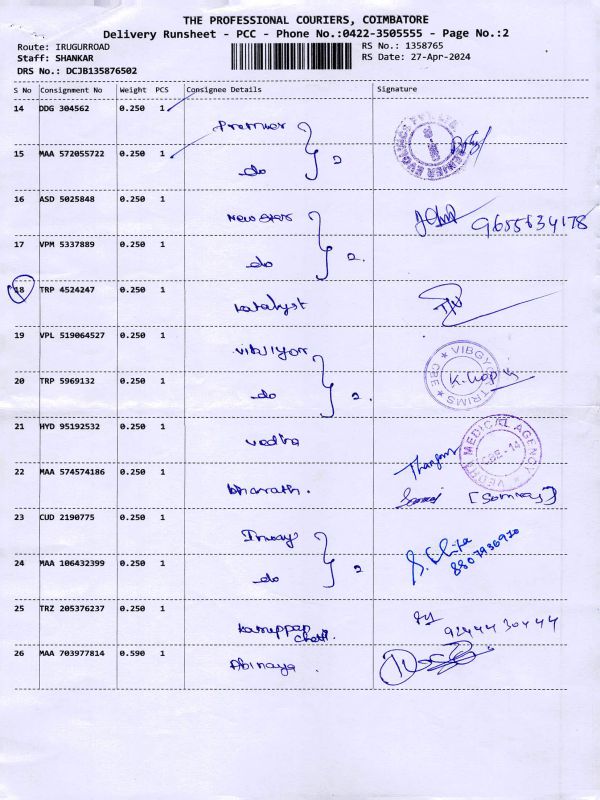 THE PROFESSIONAL COURIERS, COIMBATORE
Delivery Runsheet - PCC - Phone No.:0422-3505555 - Page No.:2
Route: IRUGURROAD RS No.: 1358765
Staff: SHANKAR RS Date: 27-Apr-2024
DRS No.: DCJB135876502
S No Consignment No Weight PCS Consignee Details Signature
14 DDG 304562 0.250 1 Premier
15 MAA 572055722 0.250 1 do 2
16 ASD 5025848 0.250 1 New star 9655834178
17 VPM 5337889 0.250 1 do 2.
18 TRP 4524247 0.250 1 Katalyst
19 VPL 519064527 0.250 1 Vibgyor VIBGYOR TRIMS CBE
20 TRP 5969132 0.250 1 do 2. K. Gop
21 HYD 95192532 0.250 1 Vedha MEDICAL AGENCY CBE-14
22 MAA 574574186 0.250 1 bharath.
23 CUD 2190775 0.250 1
24 MAA 106432399 0.250 1 do 2 8807936970
25 TRZ 205376237 0.250 1 Karuppan Chetti. 92444 30444
26 MAA 703977814 0.590 1 Abinaya.